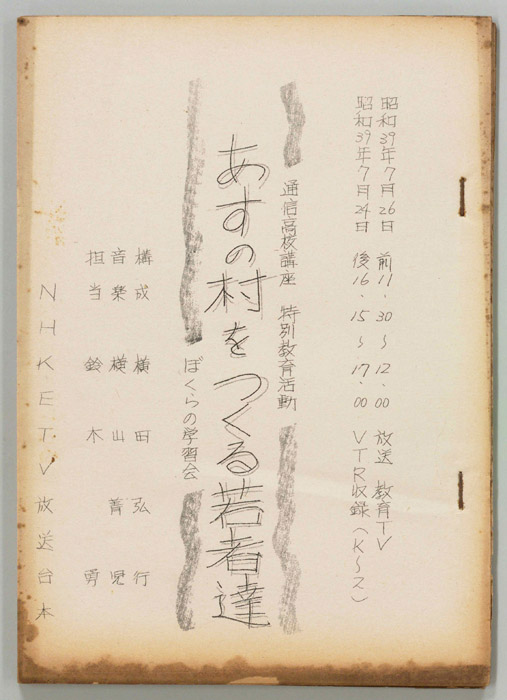 昭和39年7月26日 前11.30〜12.00 放送 教育TV
昭和39年7月24日 後16.15〜17.00 VTR収録(K〜ス)
通信高校講座 特別教育活動
あすの村をつくる若者達
ぼくらの学習会
構成 横田弘行
音楽 横山菁児
担当 鈴木勇
NHKETV放送台本